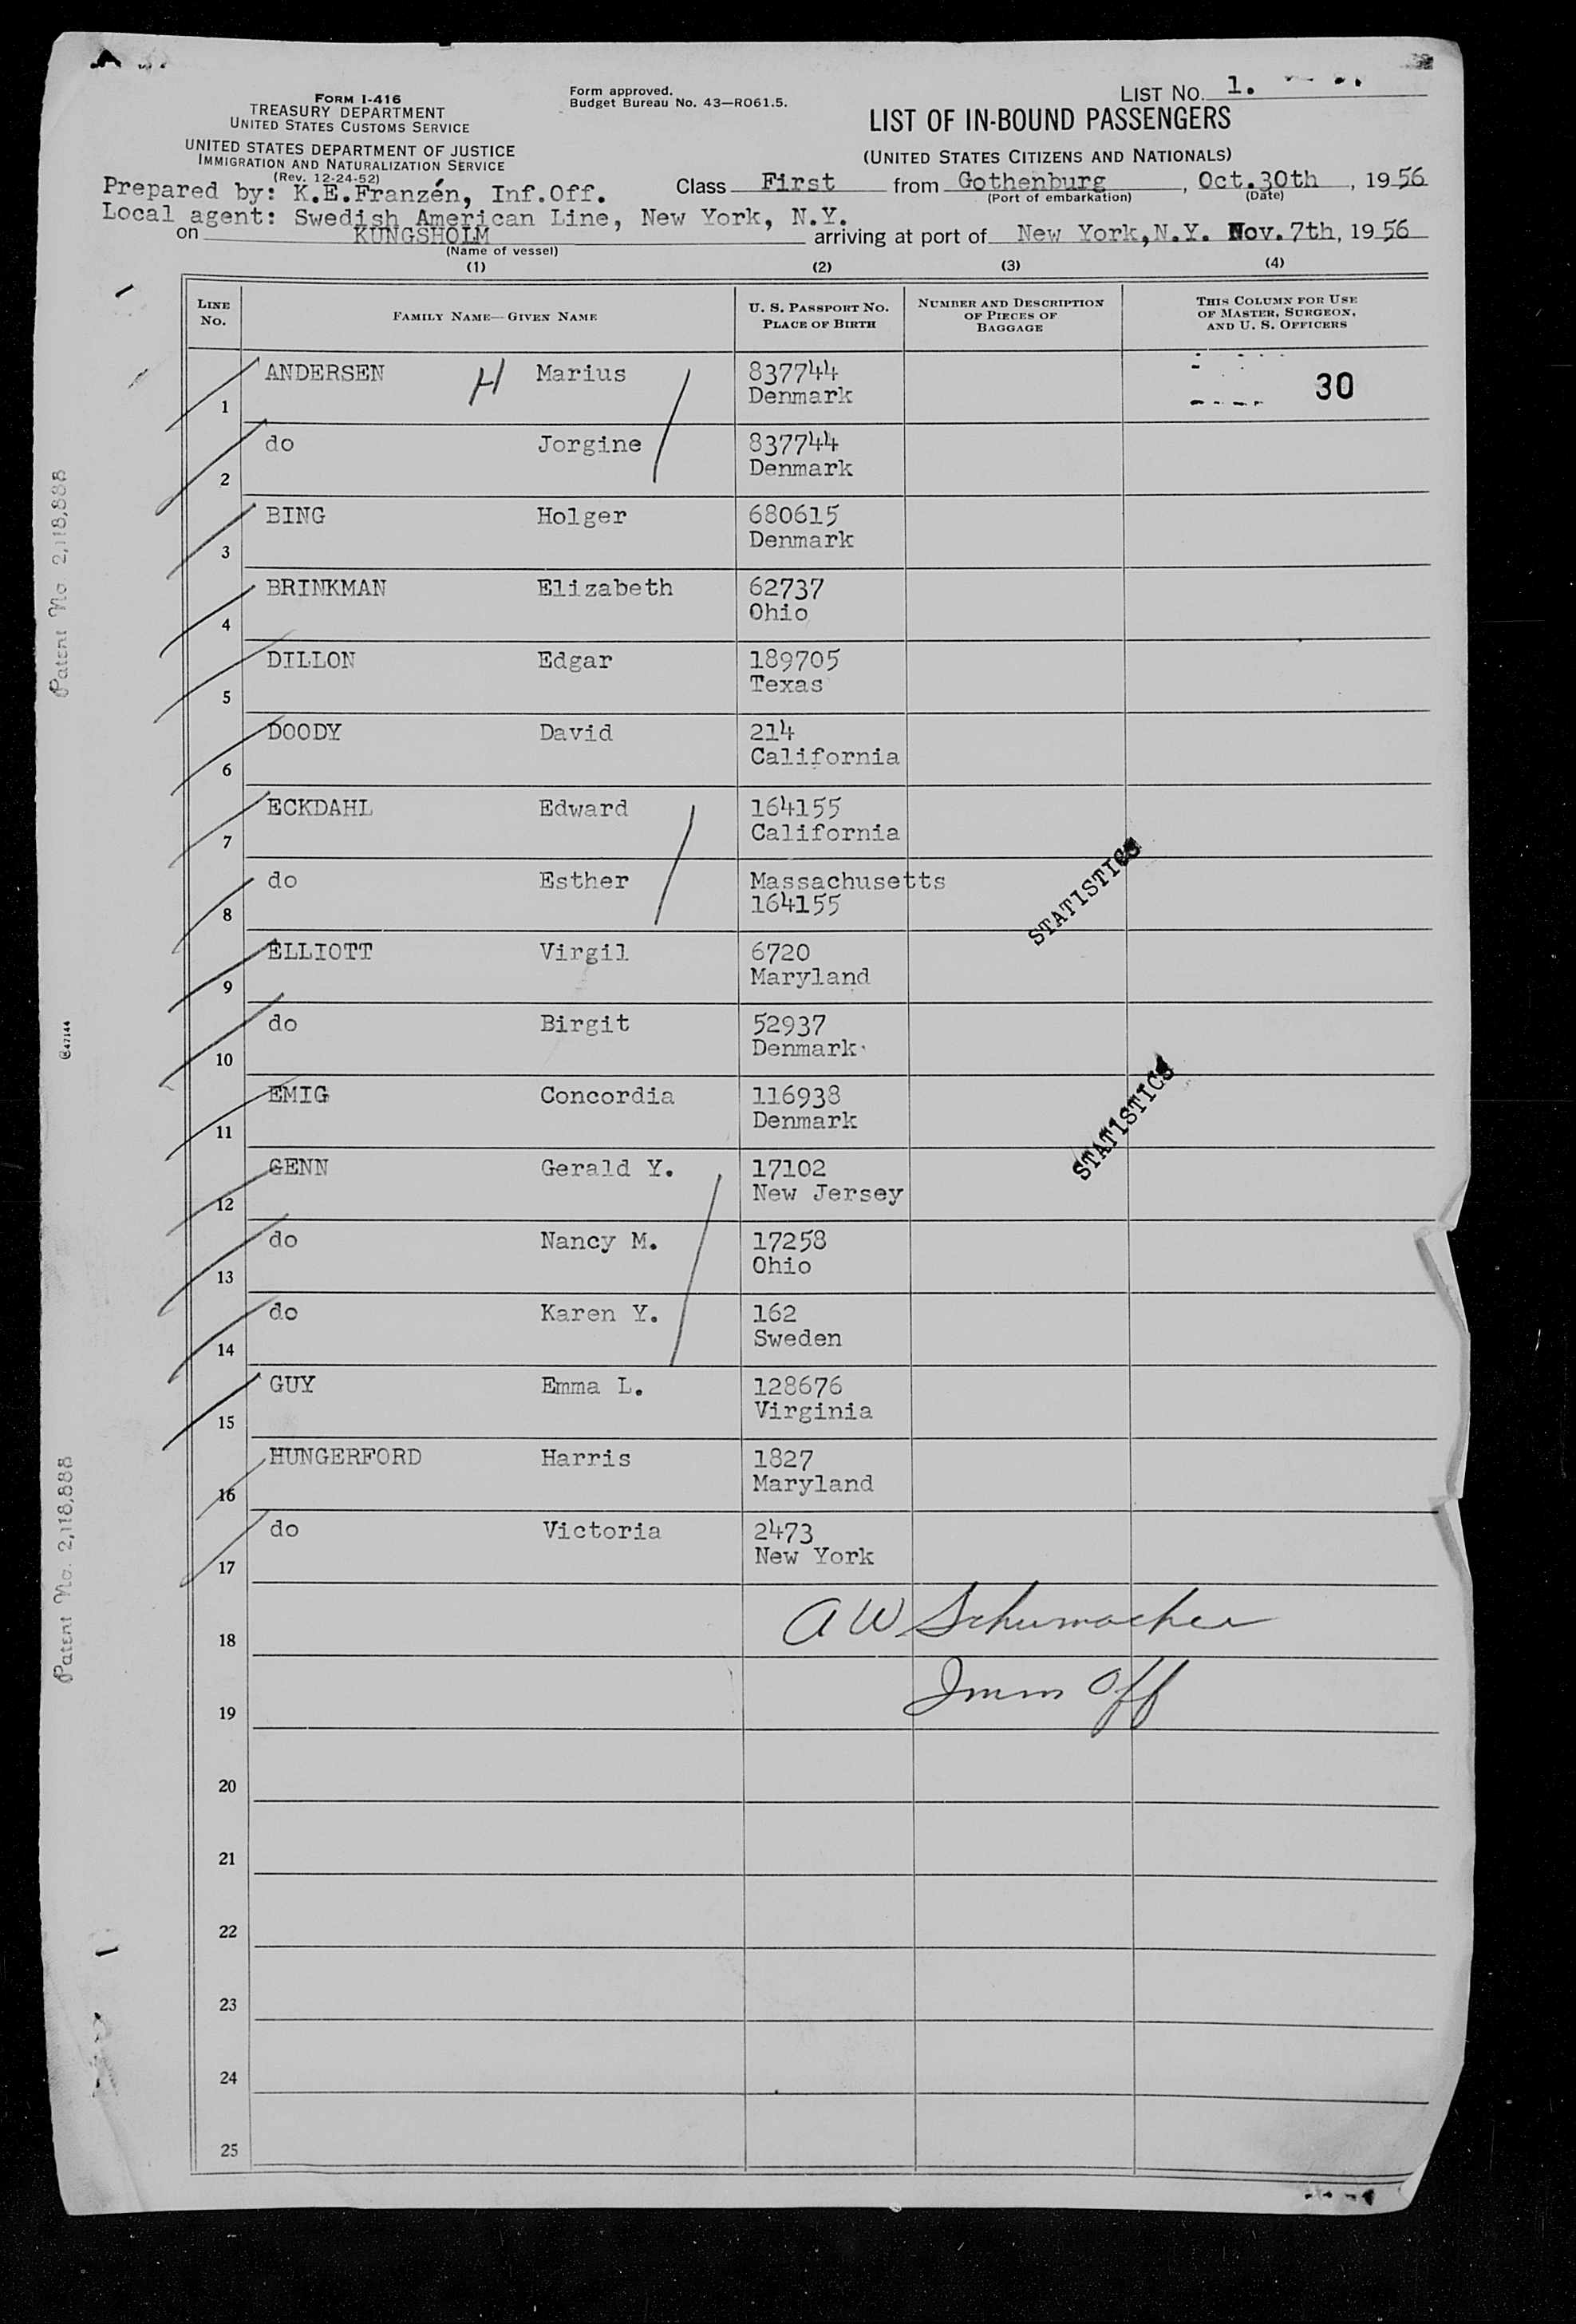 FORM I-416
TREASURY DEPARTMENT
UNITED STATES CUSTOMS SERVICE
UNITED STATES DEPARTMENT OF JUSTICE
IMMIGRATION AND NATURALIZATION SERVICE
(Rev. 12-24-52)
Form approved.
Budget Bureau No. 43—RO61.5.
LIST NO. 1.
LIST OF IN-BOUND PASSENGERS
(UNITED STATES CITIZENS AND NATIONALS)
Prepared by: K.E.Franzén, Inf.Off.
Class First from Gothenburg, Oct.30th, 1956
(Port of embarkation) (Date)
Local agent: Swedish American Line, New York, N.Y.
on KUNGSHOLM arriving at port of New York,N.Y. Nov.7th, 1956
(Name of vessel)
(1) (2) (3) (4)
LINE NO. FAMILY NAME—GIVEN NAME U. S. PASSPORT NO. PLACE OF BIRTH NUMBER AND DESCRIPTION OF PIECES OF BAGGAGE THIS COLUMN FOR USE OF MASTER, SURGEON, AND U. S. OFFICERS
1 ANDERSEN H Marius 837744 30
Denmark
2 do Jorgine 837744
Denmark
3 BING Holger 680615
Denmark
4 BRINKMAN Elizabeth 62737
Ohio
5 DILLON Edgar 189705
Texas
6 DOODY David 214
California
7 ECKDAHL Edward 164155
California
8 do Esther Massachusetts
164155
STATISTICS
9 ELLIOTT Virgil 6720
Maryland
10 do Birgit 52937
Denmark
11 EMIG Concordia 116938
Denmark
STATISTICS
12 GENN Gerald Y. 17102
New Jersey
13 do Nancy M. 17258
Ohio
14 do Karen Y. 162
Sweden
15 GUY Emma L. 128676
Virginia
16 HUNGERFORD Harris 1827
Maryland
17 do Victoria 2473
New York
18 A W Schumacher
19 Imm Off
20
21
22
23
24
25
Patent No 2,118,888
©47144
Patent No. 2,118,888